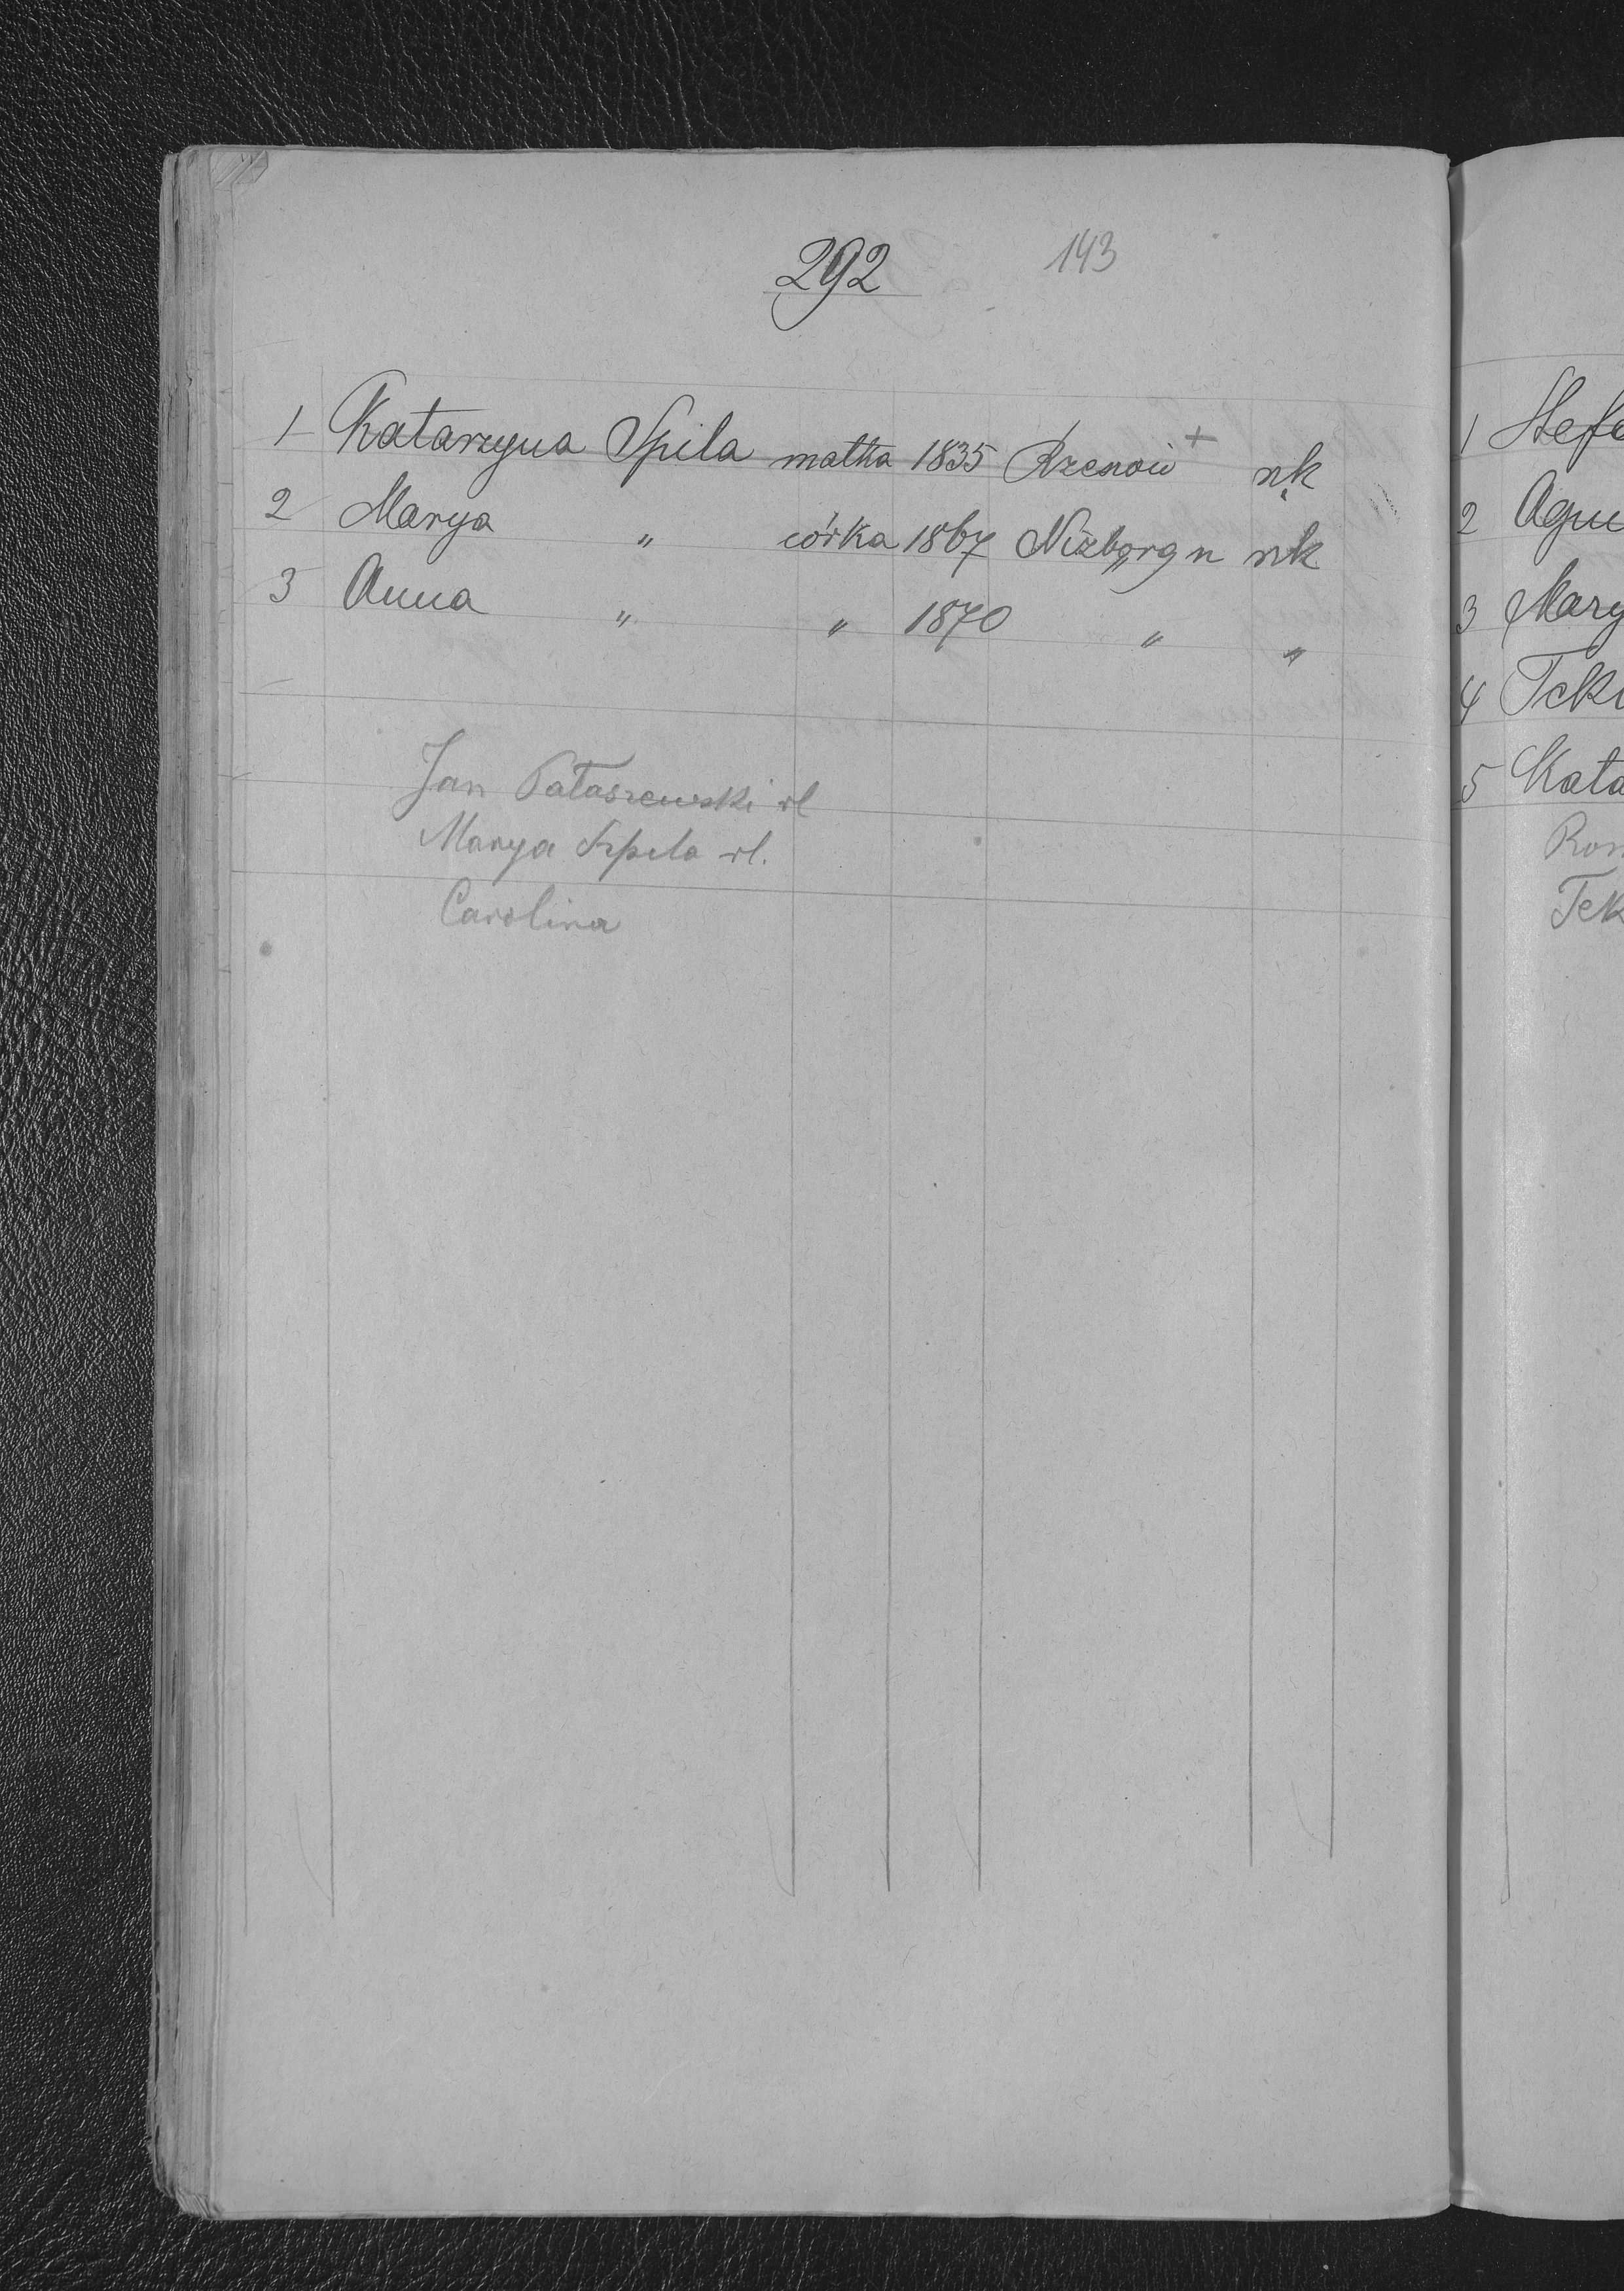 292 143
1 Katarzyna Spila matka 1835 Rzenow + nk
2 Marya " córka 1867 Niżborg n nk
3 Anna " " 1870 " "
Jan Pataszewski rl
Marya Szpila rl.
Carolina
1 Stefa
2 Agn
3 Mary
4 Tek
5 Kata
Rom
Tek